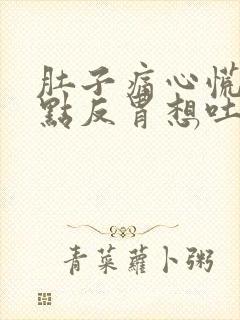 肚子痛心慌
點反胃想吐
青菜蘿卜粥